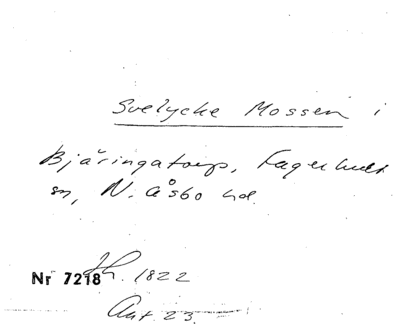 Svelycke Mossen i
Bjäringatorp, Fagerhult
sn, N. Åsbo hd.
Nr 7218 Jh. 1822
Ant 23.